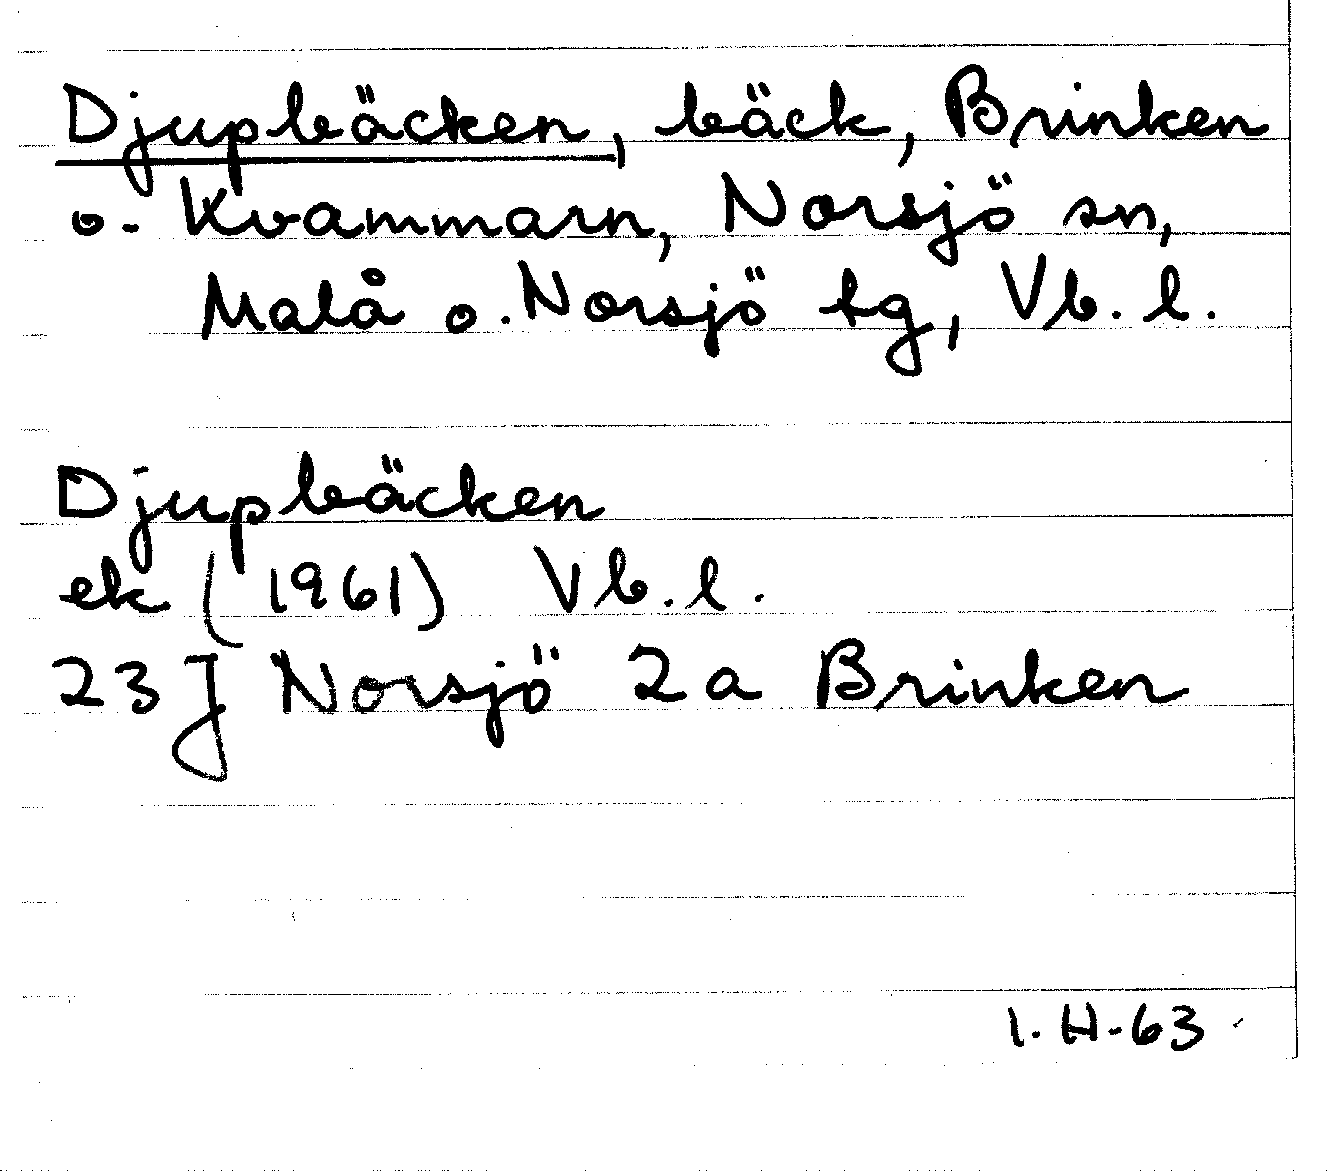 Djupbäcken, bäck, Brinken
o. Kvammarn, Norsjö sn,
Malå o. Norsjö tg, Vb. l.
Djupbäcken
ek (1961) Vb. l.
23J Norsjö 2a Brinken
I. H-63